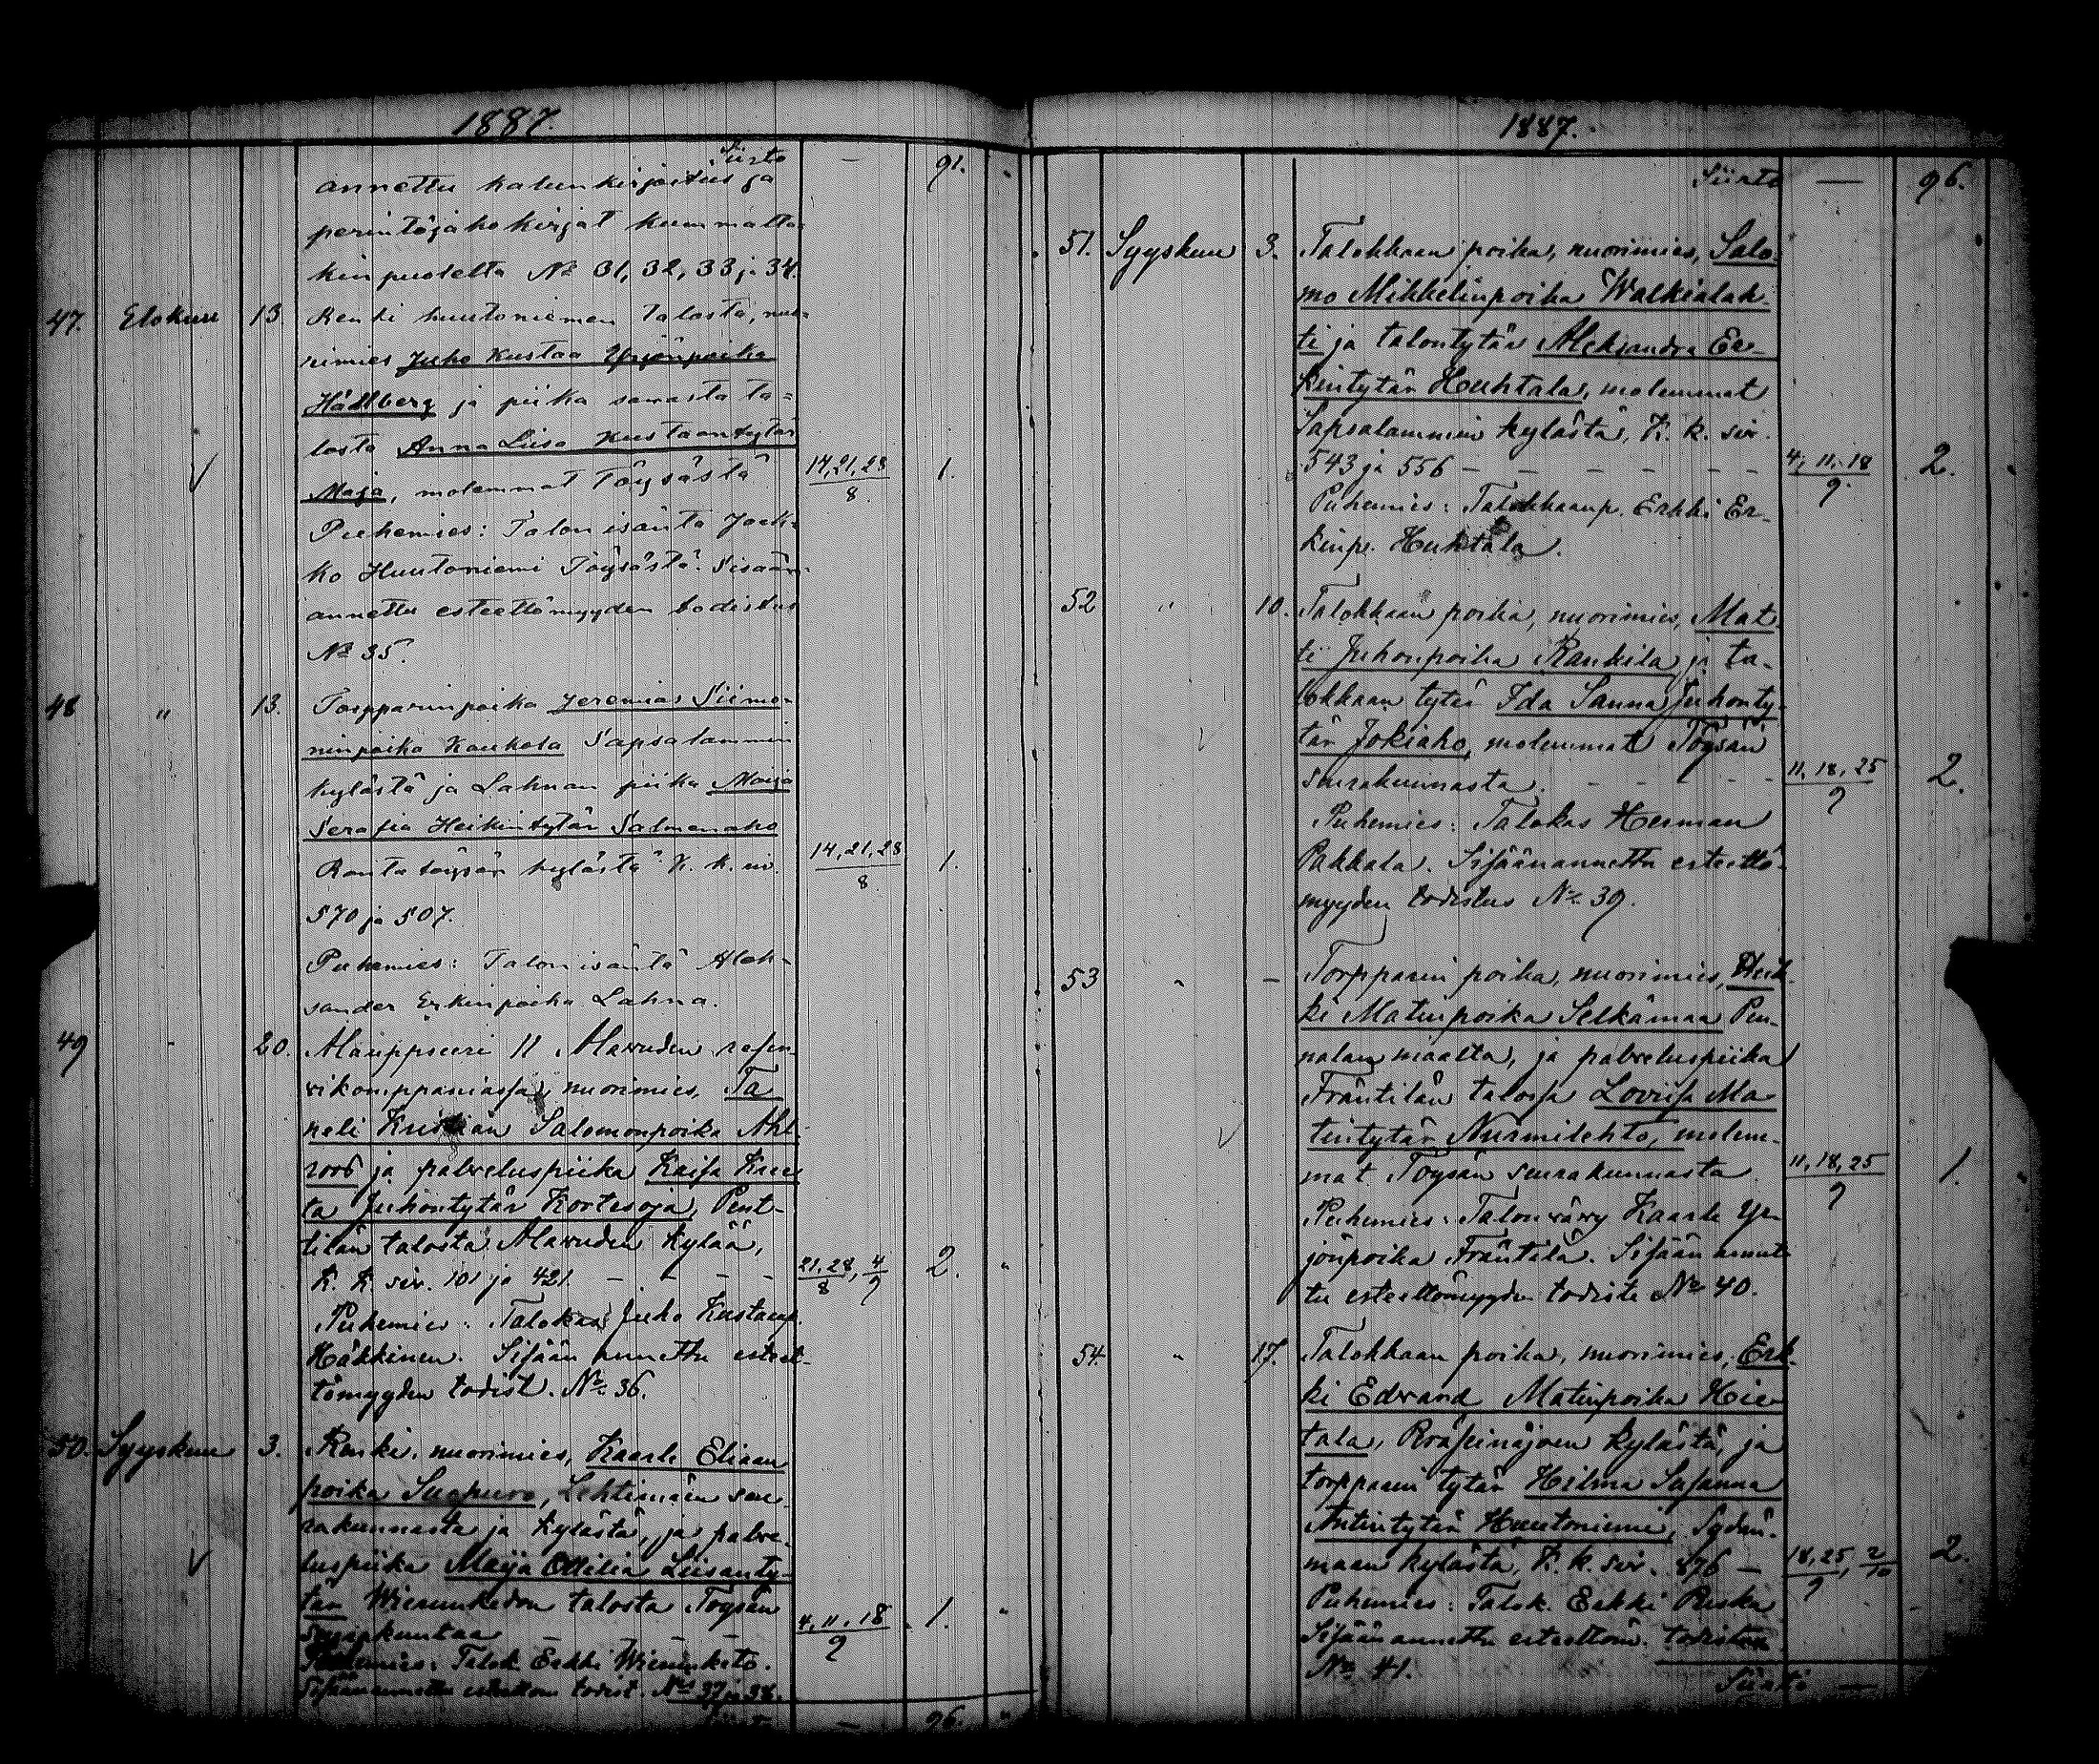 1887.
Siirto — 91.
annettu kalunkirjoitus ja
perintöjakokirjat kummalta-
kin puolelta No 31, 32, 33 ja 34.
47. Elokuu 13. Renki huutoniemen talosta, nuo-
rimies Juho Kustaa Yrjönpoika
Hällberg ja piika samasta ta=
losta Anna Liisa Kustaantytär
Maja, molemmat Töysästä 14, 21, 28 / 8. 1.
Puhemies: Talon isäntä Jaak-
ko Huutoniemi Töysästä. Sisään-
annettu esteettömyyden todistus
No 35.
48 " 13. Torpparinpoika Jeremias Siimo-
ninpoika Kaukola Sapsalammin
kylästä ja Lahnan piika Maija
Serafia Heikintytär Salmenaho
Rantatöysän kylästä K. k. siv. 14, 21, 28 / 8. 1.
570 ja 507.
Puhemies: Talon isäntä Alek-
sander Erkinpoika Lahna.
49 " 20. Aliuppseeri 11 Alavuden reser-
vikomppaniassa, nuorimies, Ta
neli Kristian Salomonpoika Ahl
roos ja palveluspiika Kaisa Kreeta
ta Juhontytär Kortesoja, Pent-
tilän talosta Alavuden kylää,
K. K. siv. 101 ja 421. — — — — 21, 28 / 8, 4 / 9 2. "
Puhemies: Talokas Juho Kustaap.
Häkkinen. Sisään annettu esteet-
tömyyden todist. No 36.
50. Syyskuu 3. Renki, nuorimies, Kaarle Eliaan
poika Suopuro, Lehtimäen seu-
rakunnasta ja kylästä, ja palve-
luspiika Maija Ottilia Liisanty-
tär Wierunkedon talosta Töysän
seurakuntaa — — — — 4, 11, 18 / 9 1. "
Puhemies: Talok. Erkki Wierunketo.
Sisäänannettu esteettöm. todist. No 37 ja 38.
— 96. "
1887.
Siirto — 96.
51. Syyskuu 3. Talokkaan poika, nuorimies, Salo-
mo Mikkelinpoika Walkialah-
ti ja talontytär Aleksandra Er-
kintytär Huhtala, molemmat
Sapsalammin kylästä, K. k. siv.
543 ja 556 — — — — — — 4, 11, 18 / 9. 2. "
Puhemies: Talokkaanp. Erkki Er-
kinp. Huhtala.
52 " 10. Talokkaan poika, nuorimies, Mat-
ti Juhonpoika Rankila ja ta-
lokkaan tytär Ida Sanna Juhonty-
tär Jokiaho, molemmat Töysän
seurakunnasta. — — — — 11, 18, 25 / 9 2.
Puhemies: Talokas Herman
Pakkala. Sisäänannettu esteettö-
myyden todistus No 39.
53 " — Torpparin poika, nuorimies, Heik-
ki Matinpoika Selkämaa Pen-
nalan maalta, ja palveluspiika
Fräntilän talossa Loviisa Ma-
tintytär Nurmilehto, molem-
mat Töysän seurakunnasta. 11, 18, 25 / 9 1.
Puhemies: Talonvävy Kaarle Yr-
jönpoika Fräntilä. Sisään annet-
tu esteettömyyden todiste No 40.
54. " 17. Talokkaan poika, nuorimies, Erk-
ki Edvard Matinpoika Hie-
tala, Rräseinäjoen kylästä, ja
torpparin tytär Hilma Susanna
Antintytär Huutoniemi, Sydän-
maan kylästä, K. k. siv. 876 — 18, 25 / 9, 2 / 10 2.
Puhemies: Talok. Erkki Ruska
Sisäänannettu esteettöm. todistus
No 41.
Siirto —